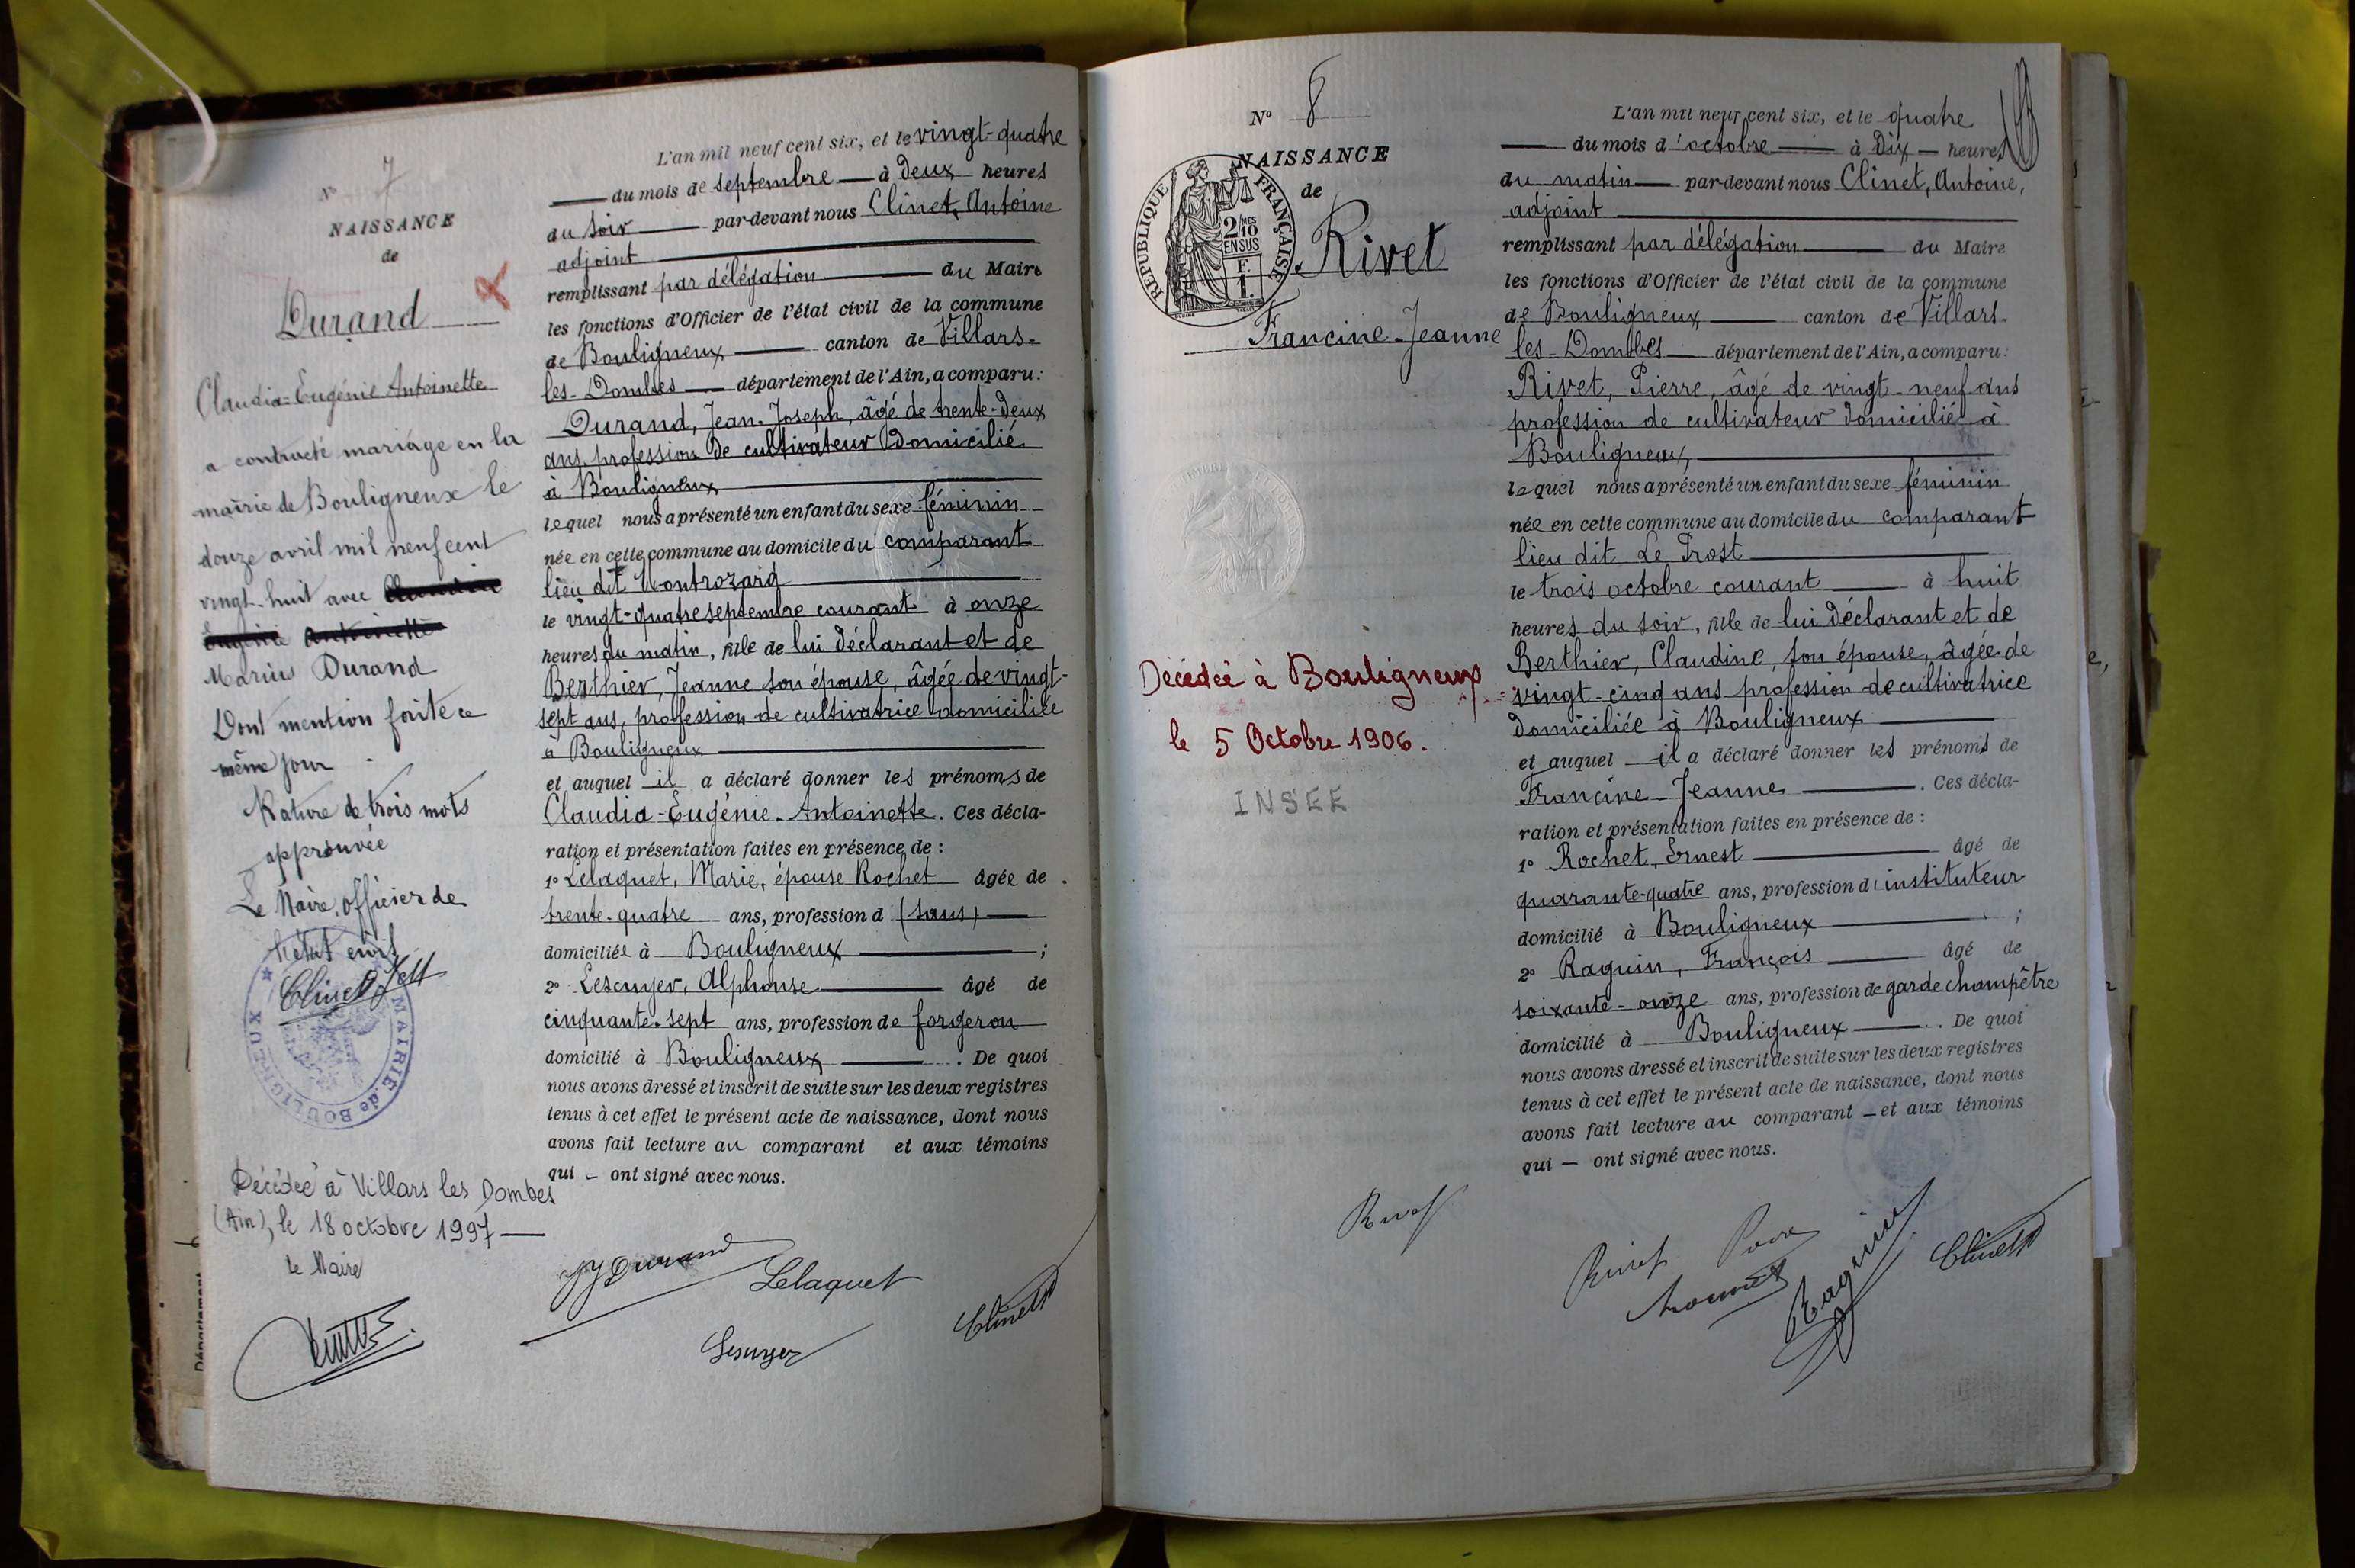 N° 7
NAISSANCE
de
Durand
Claudia-Eugénie-Antoinette
a contracté mariage en la
mairie de Bouligneux le
douze avril mil neuf cent
vingt-huit avec
Marius Durand
Dont mention faite ce
même jour
Rature de trois mots
approuvée
Le Maire, officier de
l'état civil
Clinet
MAIRIE de BOULIGNEUX
Décédée à Villars les Dombes
(Ain), le 18 octobre 1997
le Maire
L'an mil neuf cent six, et le vingt-quatre
du mois de septembre à deux heures
du soir par-devant nous Clinet, Antoine
adjoint
remplissant par délégation du Maire
les fonctions d'Officier de l'état civil de la commune
de Bouligneux canton de Villars-
les-Dombes département de l'Ain, a comparu:
Durand, Jean-Joseph, âgé de trente-deux
ans, profession de cultivateur domicilié
à Bouligneux
lequel nous a présenté un enfant du sexe féminin
née en cette commune au domicile du comparant
lieu dit Montrozard
le vingt-quatre septembre courant à onze
heures du matin, fille de lui déclarant et de
Berthier, Jeanne son épouse, âgée de vingt-
sept ans, profession de cultivatrice domiciliée
à Bouligneux
et auquel il a déclaré donner les prénoms de
Claudia-Eugénie-Antoinette. Ces décla-
ration et présentation faites en présence de :
1° Lelaquet, Marie, épouse Rochet âgée de
trente-quatre ans, profession d (sans)
domiciliée à Bouligneux ;
2° Lescuyer, Alphonse âgé de
cinquante-sept ans, profession de forgeron
domicilié à Bouligneux . De quoi
nous avons dressé et inscrit de suite sur les deux registres
tenus à cet effet le présent acte de naissance, dont nous
avons fait lecture au comparant et aux témoins
qui – ont signé avec nous.
JJ Durand
Lelaquet
Lescuyer
Clinet
Département
N° 8
NAISSANCE
de
Rivet
Francine-Jeanne
RÉPUBLIQUE FRANÇAISE
2/10 MES
EN SUS
F.
1.
Décédée à Bouligneux
le 5 Octobre 1906.
INSEE
L'an mil neuf cent six, et le quatre
du mois d'octobre à dix heures
du matin par-devant nous Clinet, Antoine,
adjoint
remplissant par délégation du Maire
les fonctions d'Officier de l'état civil de la commune
de Bouligneux canton de Villars-
les-Dombes département de l'Ain, a comparu:
Rivet, Pierre, âgé de vingt-neuf ans
profession de cultivateur domicilié à
Bouligneux,
lequel nous a présenté un enfant du sexe féminin
née en cette commune au domicile du comparant
lieu dit Le Prost
le trois octobre courant à huit
heures du soir, fille de lui déclarant et de
Berthier, Claudine, son épouse, âgée de
vingt-cinq ans profession de cultivatrice
domiciliée à Bouligneux
et auquel il a déclaré donner les prénoms de
Francine-Jeanne . Ces décla-
ration et présentation faites en présence de :
1° Rochet, Ernest âgé de
quarante-quatre ans, profession d'instituteur
domicilié à Bouligneux ;
2° Raguin, François âgé de
soixante-onze ans, profession de garde champêtre
domicilié à Bouligneux . De quoi
nous avons dressé et inscrit de suite sur les deux registres
tenus à cet effet le présent acte de naissance, dont nous
avons fait lecture au comparant – et aux témoins
qui – ont signé avec nous.
Rivet
Raguin
Clinet